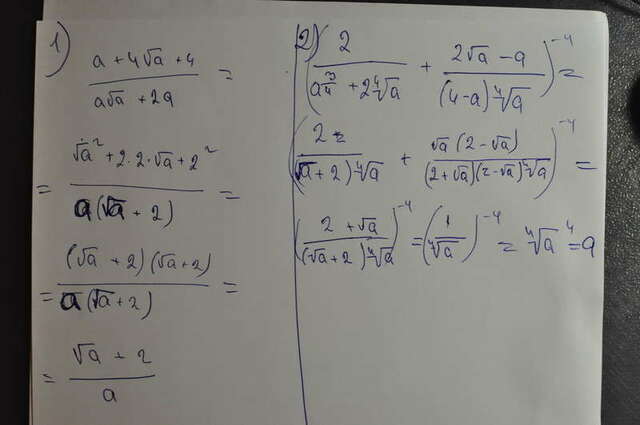 1)
(a + 4√a + 4)/(a√a + 2a) =
= (√a² + 2·2·√a + 2²)/(a(√a + 2)) =
= ((√a + 2)(√a + 2))/(a(√a + 2)) =
= (√a + 2)/a
2)
(2/(a^(3/4) + 2⁴√a) + (2√a − a)/((4−a)⁴√a))⁻⁴ =
(2/((√a + 2)⁴√a) + (√a(2 − √a))/((2+√a)(2−√a)⁴√a))⁻⁴ =
((2 + √a)/((√a + 2)⁴√a))⁻⁴ = (1/⁴√a)⁻⁴ = ⁴√a⁴ = a